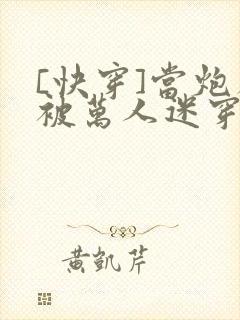 [快穿]當炮
被萬人迷穿
黃凱芹